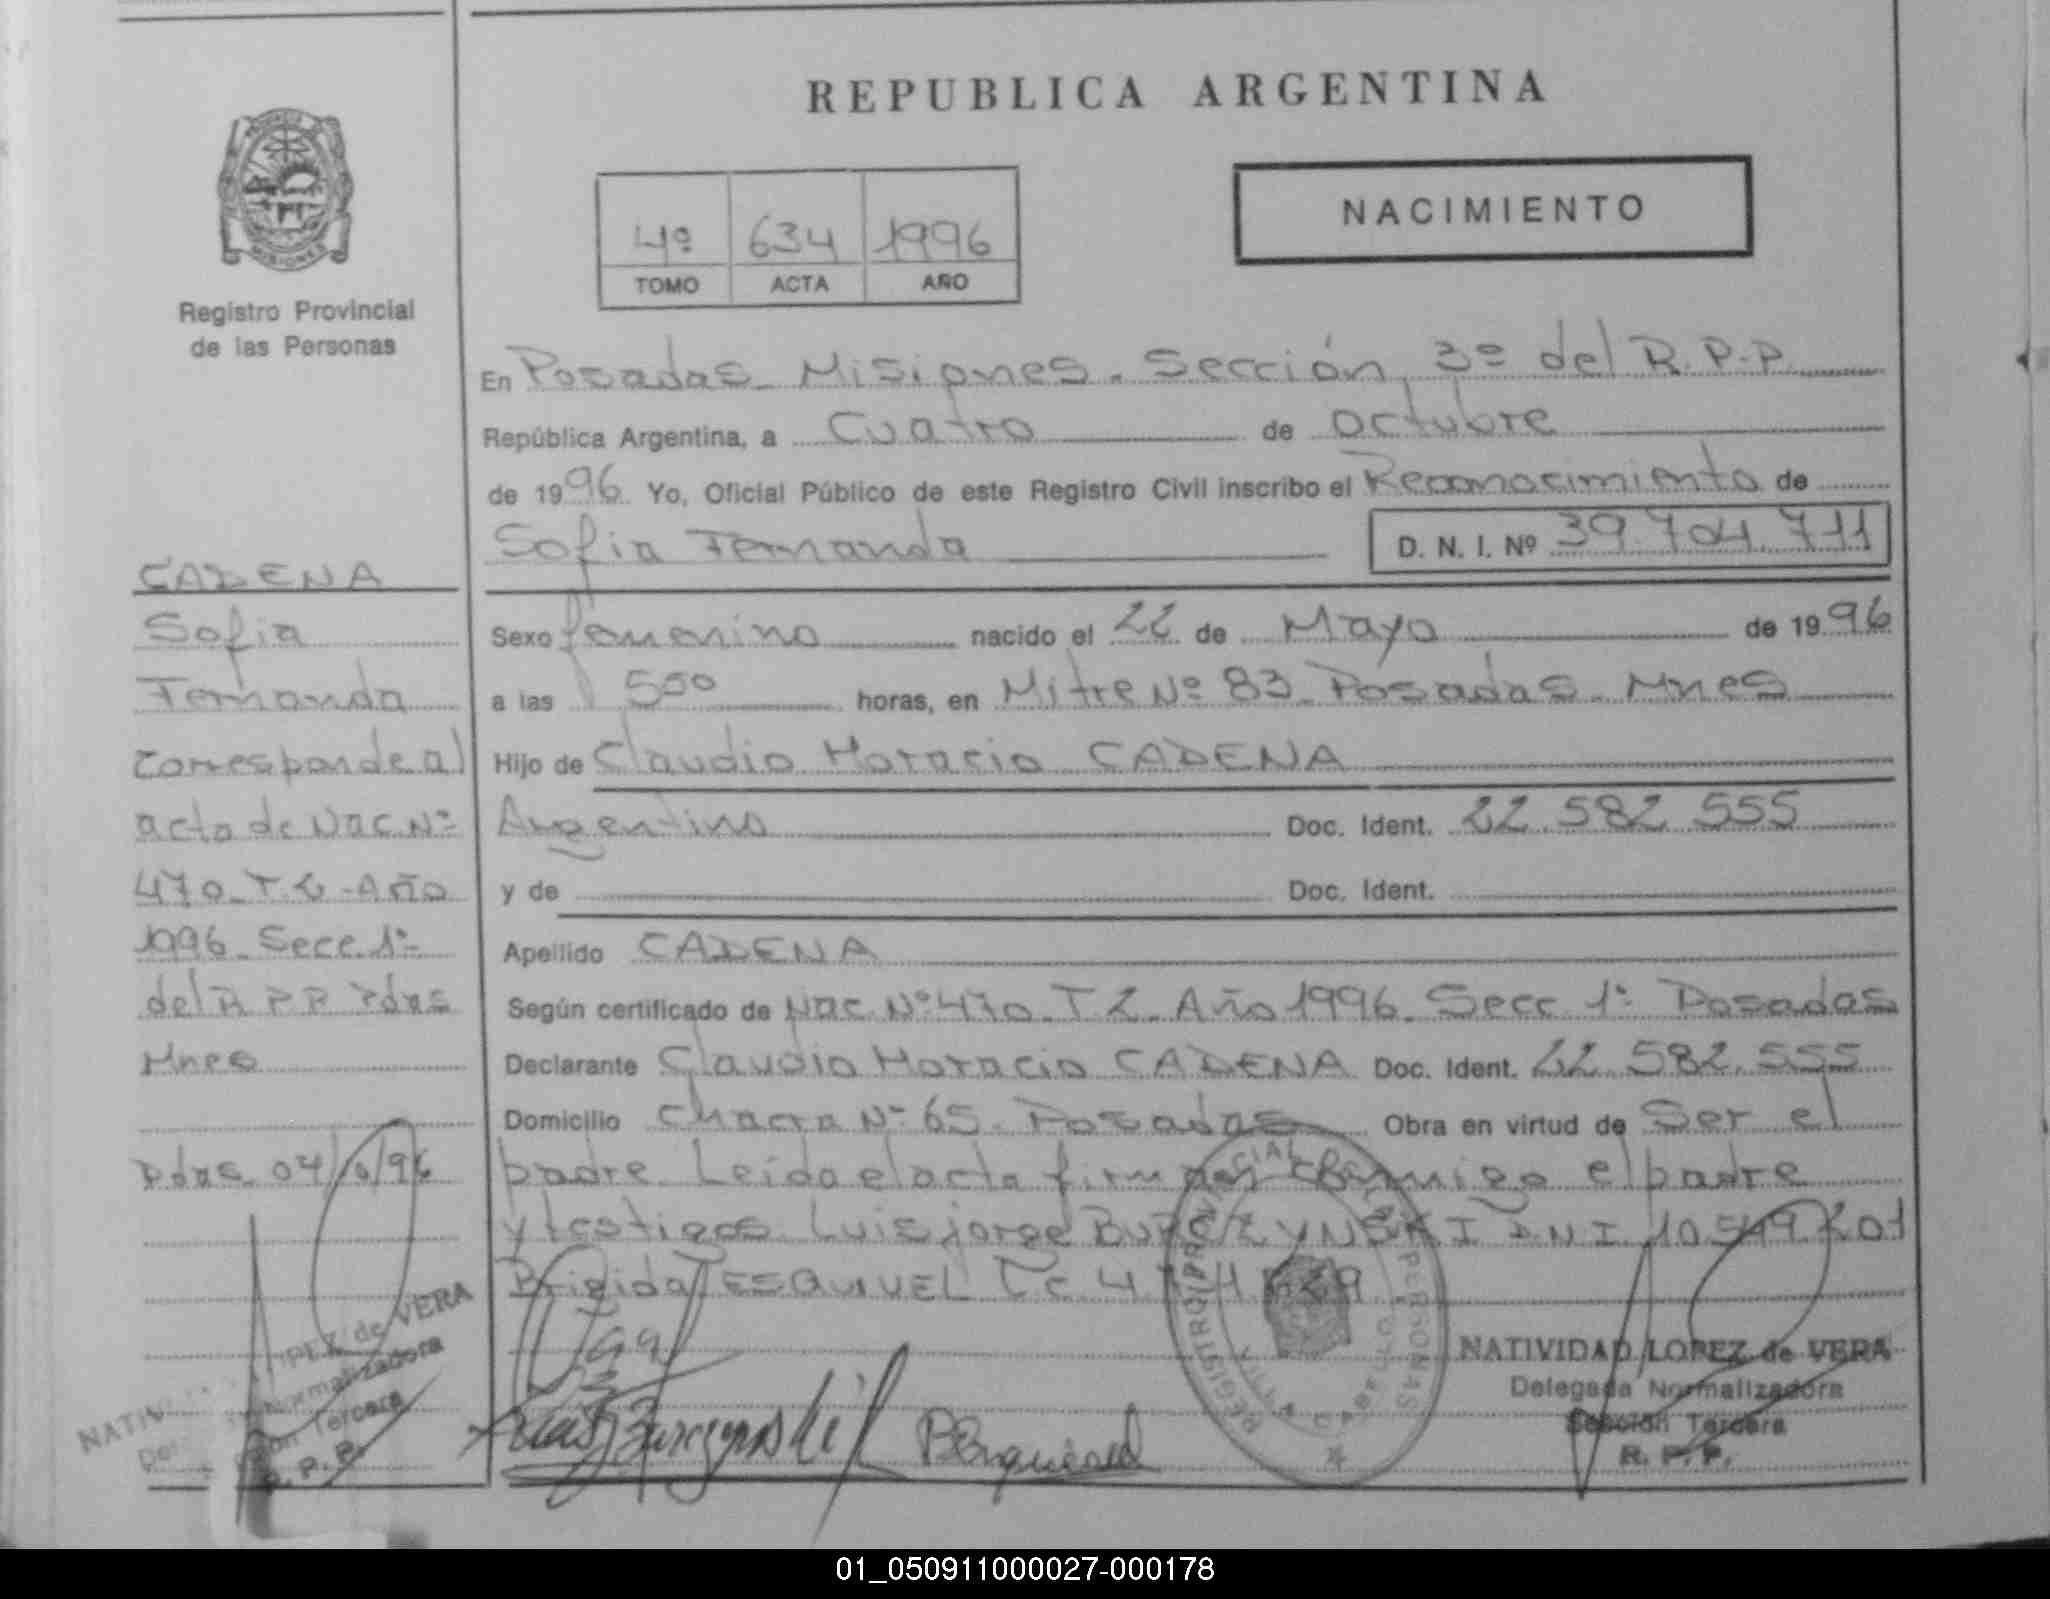 REPUBLICA ARGENTINA
NACIMIENTO
4º 634 1996
TOMO ACTA AÑO
MISIONES
Registro Provincial
de las Personas
En Posadas Misiones. Sección 3º del R.P.P.
República Argentina, a Cuatro de octubre
de 1996. Yo, Oficial Público de este Registro Civil inscribo el Reconocimiento de
Sofia Fernanda D. N. I. Nº 39.704.711
Sexo femenino nacido el 22 de Mayo de 1996
a las 5:50 horas, en Mitre Nº 83 Posadas Mnes
Hijo de Claudio Horacio CADENA
Argentino Doc. Ident. 22.582.555
y de Doc. Ident.
Apellido CADENA
Según certificado de Nac. Nº 470 T.2 Año 1996 Secc 1º Posadas
Declarante Claudio Horacio CADENA Doc. Ident. 22.582.555
Domicilio Chacra Nº 65 Posadas Obra en virtud de Ser el
padre Leida el acta firman conmigo el padre
y testigos Luis jorge BURCZYNSKI D.N.I. 10.549.201
Brigida ESQUIVEL L.C.
NATIVIDAD LOPEZ de VERA
Delegada Normalizadora
Sección Tercera
R. P. P.
CADENA
Sofia
Fernanda
Corresponde al
acta de Nac Nº
470 T.2 Año
1996 Secc. 1º
del R.P.P. Pdas
Mnes
Pdas 04/10/96
de VERA
Normalizadora
Tercera
R. P. P.
01_050911000027-000178